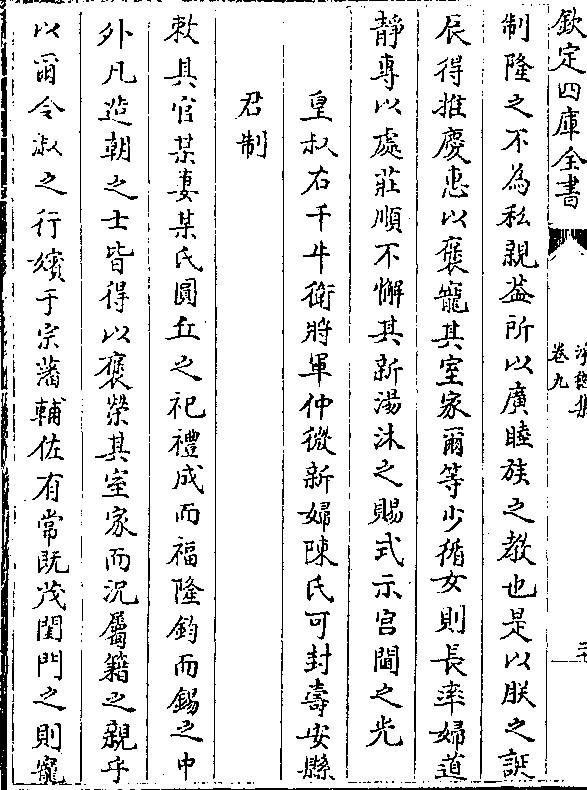 欽定四庫全書
卷九
制隆之不為私親葢所以廣睦族之教也是以朕之誕
辰得推慶惠以褒寵其室家爾等少循女則長率婦道
靜專以處莊順不懈其新湯沐之賜式示宫闈之光
皇叔右千牛衛將軍仲微新婦陳氏可封壽安縣
君制
敕具官某妻某氏圓丘之祀禮成而福隆鈞而錫之中
外凡造朝之士皆得以褒榮其室家而況屬籍之親乎
以爾令淑之行嬪于宗藩輔佐有常既茂閨門之則寵